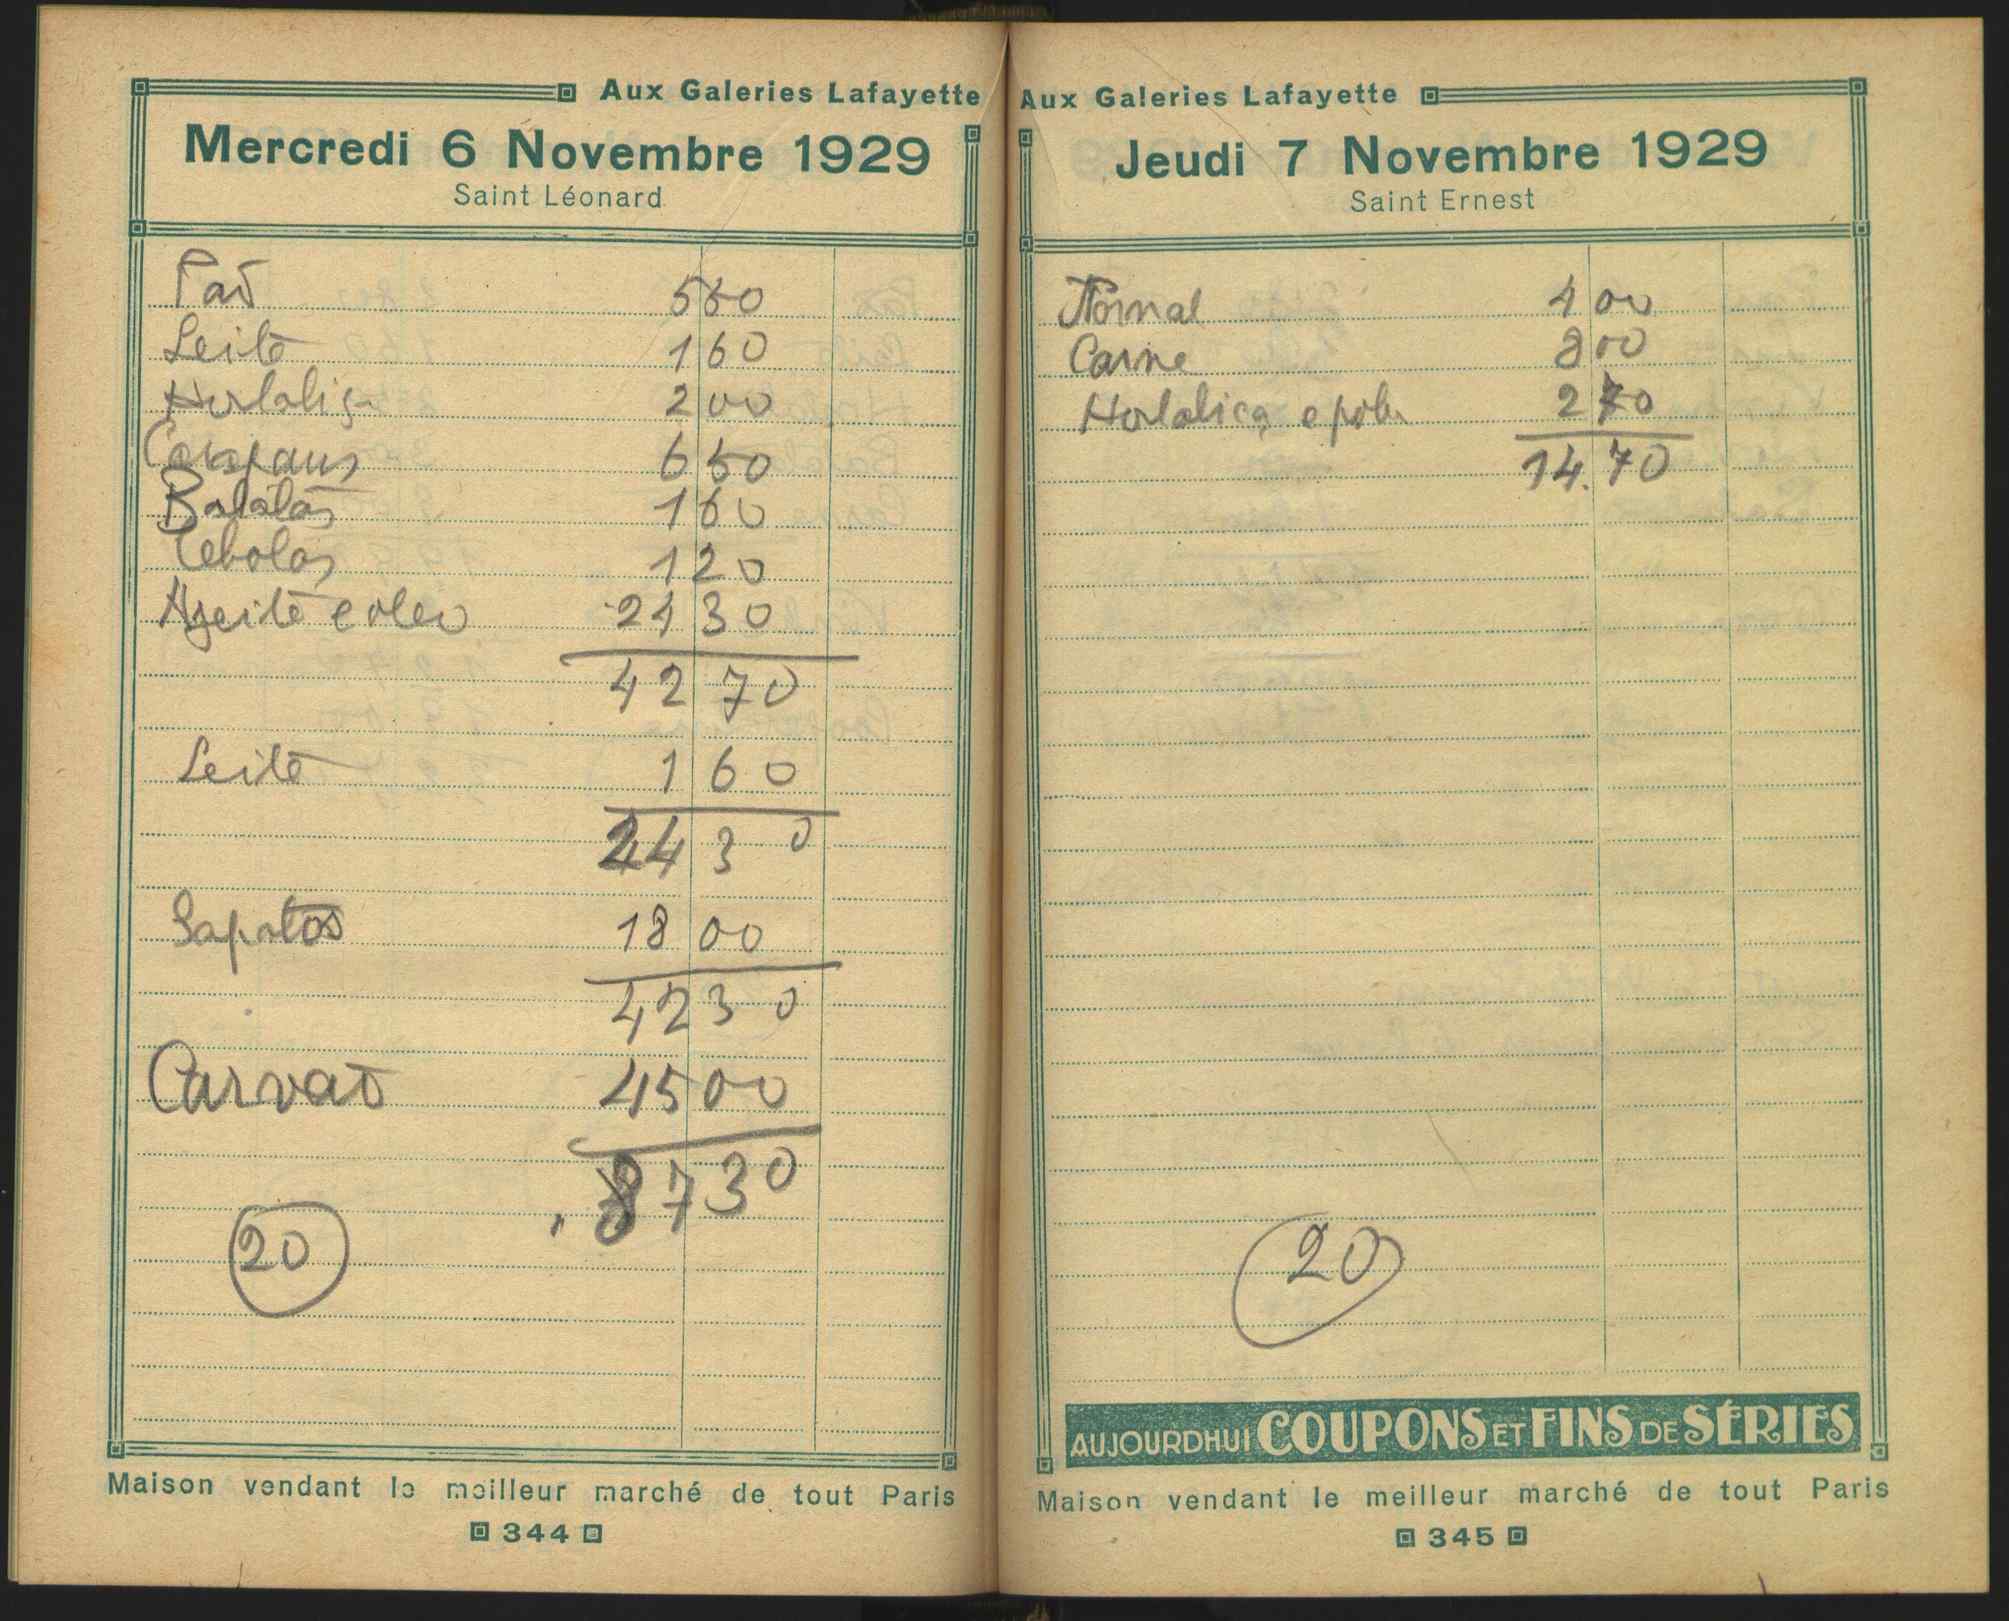 Aux Galeries Lafayette
Mercredi 6 Novembre 1929
Saint Léonard
Pão 5 50
Leite 1 60
Hortaliça 2 00
6 50
Batatas 1 60
Cebolas 1 20
Azeite e oleo 24 30
42 70
Leite 1 60
44 30
Sapatos 18 00
42 30
Carvão 45 00
87 30
20
Maison vendant le meilleur marché de tout Paris
344
Aux Galeries Lafayette
Jeudi 7 Novembre 1929
Saint Ernest
Jornal 4 00
Carne 8 00
Hortaliça e 2 70
14.70
20
AUJOURDHUI COUPONS ET FINS DE SÉRIES
Maison vendant le meilleur marché de tout Paris
345